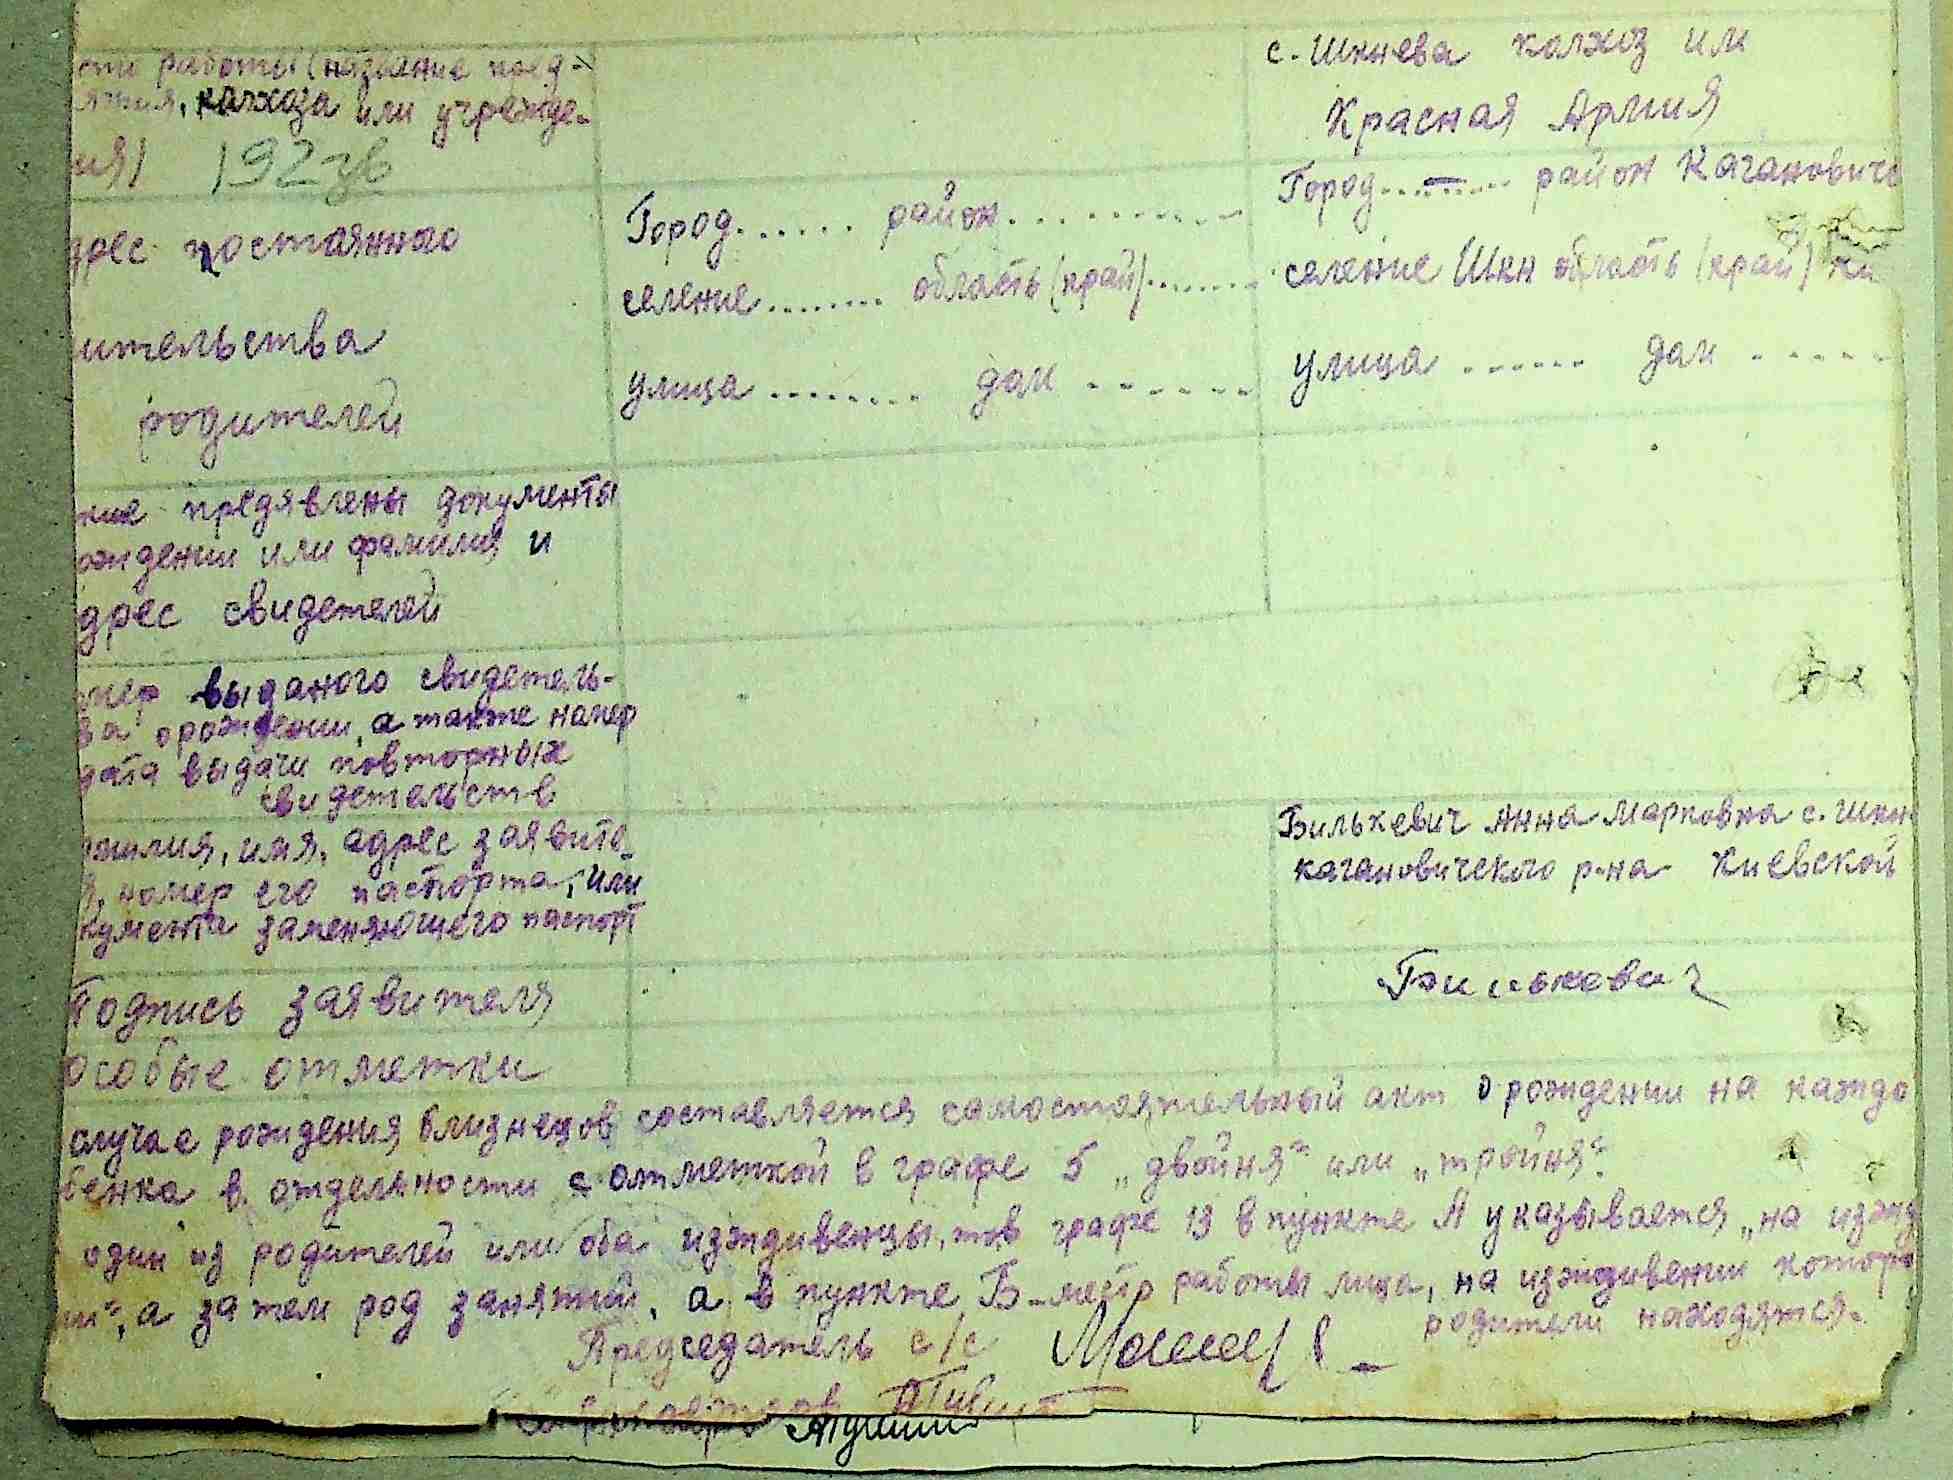 сти работы (название пред-
ятия, колхоза или учрежде-
ия) 192
с. Шкнева колхоз им
Красная Армия
дрес постоянного
ительства
родителей
Город...... район..........
селение....... область (край).......
улица ........ дом ......
Город........ район Кагановиче
селение Шкн область (край) Ки
улица ...... дом .....
кие предявлены документы
ождении или фамилия и
дрес свидетелей
мер выданого свидетель-
ва о рождении, а также номер
дата выдачи повторных
свидетельств
амилия, имя, адрес заявите-
я, номер его паспорта, или
кумента заменяющего паспорт
Билькевич Анна Марковна с. Шкн
кагановичского р-на Киевской
Подпись заявителя
Билькевич
Особые отметки
случае рождения близнецов составляется самостоятельный акт о рождении на каждо
бенка в отдельности с отметкой в графе 5 „двойня“ или „тройня“.
один из родителей или оба иждивенцы, то в графе 13 в пункте А указывается „на ижд
ии“, а затем род занятий, а в пункте Б - место работы лица, на иждивении которо
родители находятся.
Председатель с/с